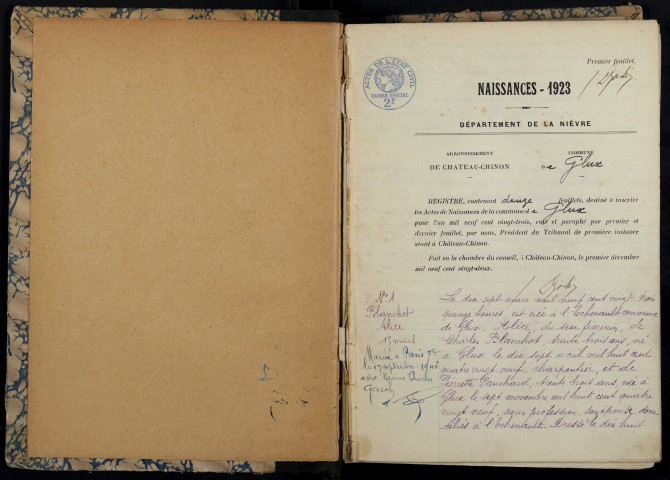 Premier feuillet.
ACTES DE L'ÉTAT CIVIL
PAPIER SPÉCIAL
2F
NAISSANCES - 1923
DÉPARTEMENT DE LA NIÈVRE
ARRONDISSEMENT
DE CHATEAU-CHINON
COMMUNE
De Glux
REGISTRE, contenant douze feuillets, destiné à inscrire
les Actes de Naissances de la commune de Glux
pour l'an mil neuf cent vingt-trois, coté et paraphé par premier et
dernier feuillet, par nous, Président du Tribunal de première instance
séant à Château-Chinon.
Fait en la chambre du conseil, à Château-Chinon, le premier décembre
mil neuf cent vingt-deux.
No 1
Blanchot
Alice
17 mars
Mariée à Paris
le 17 septembre 1946
avec
Le dix sept mars mil neuf cent vingt trois
heures, est née à l'Echenault commune
de Glux, Alice, du sexe féminin, de
Charles Blanchot, trente trois ans, né
à Glux le dix sept avril mil huit cent
quatre vingt neuf, charpentier, et de
Pierrette trente trois ans, née à
Glux le sept novembre mil huit cent quatre
vingt neuf, sans profession, son épouse, domi-
ciliés à l'Echenault. Dressé le dix huit